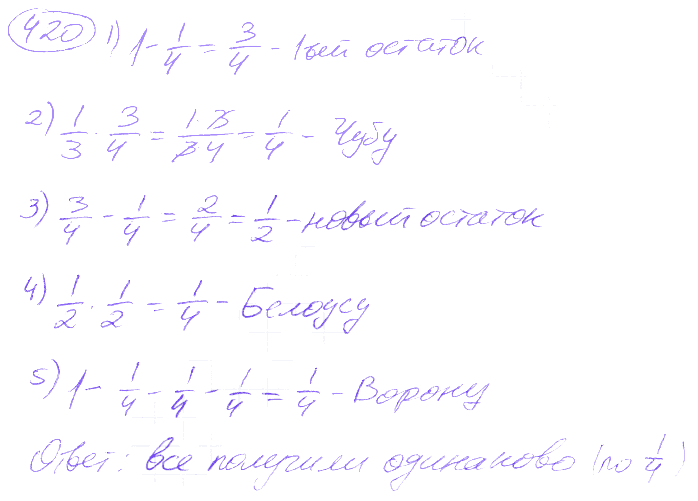 420 1) 1 - 1/4 = 3/4 - 1ый остаток
2) 1/3 · 3/4 = 1·3/3 4 = 1/4 - Чубу
3) 3/4 - 1/4 = 2/4 = 1/2 - новый остаток
4) 1/2 · 1/2 = 1/4 - Белоусу
5) 1 - 1/4 - 1/4 - 1/4 = 1/4 - Ворону
Ответ: все получили одинаково (по 1/4)